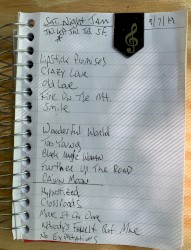 Sat Night Jam
9/7/19
Lipstick Promises
Crazy Love
Old Love
Fire On The Mt.
Smile
Wonderful World
Too Young
Black Magic Woman
Further Up The Road
Dawn Moon
Hypnotized
Crossroads
Make It On Own
Nobody's Fault But Mine
No Expectations